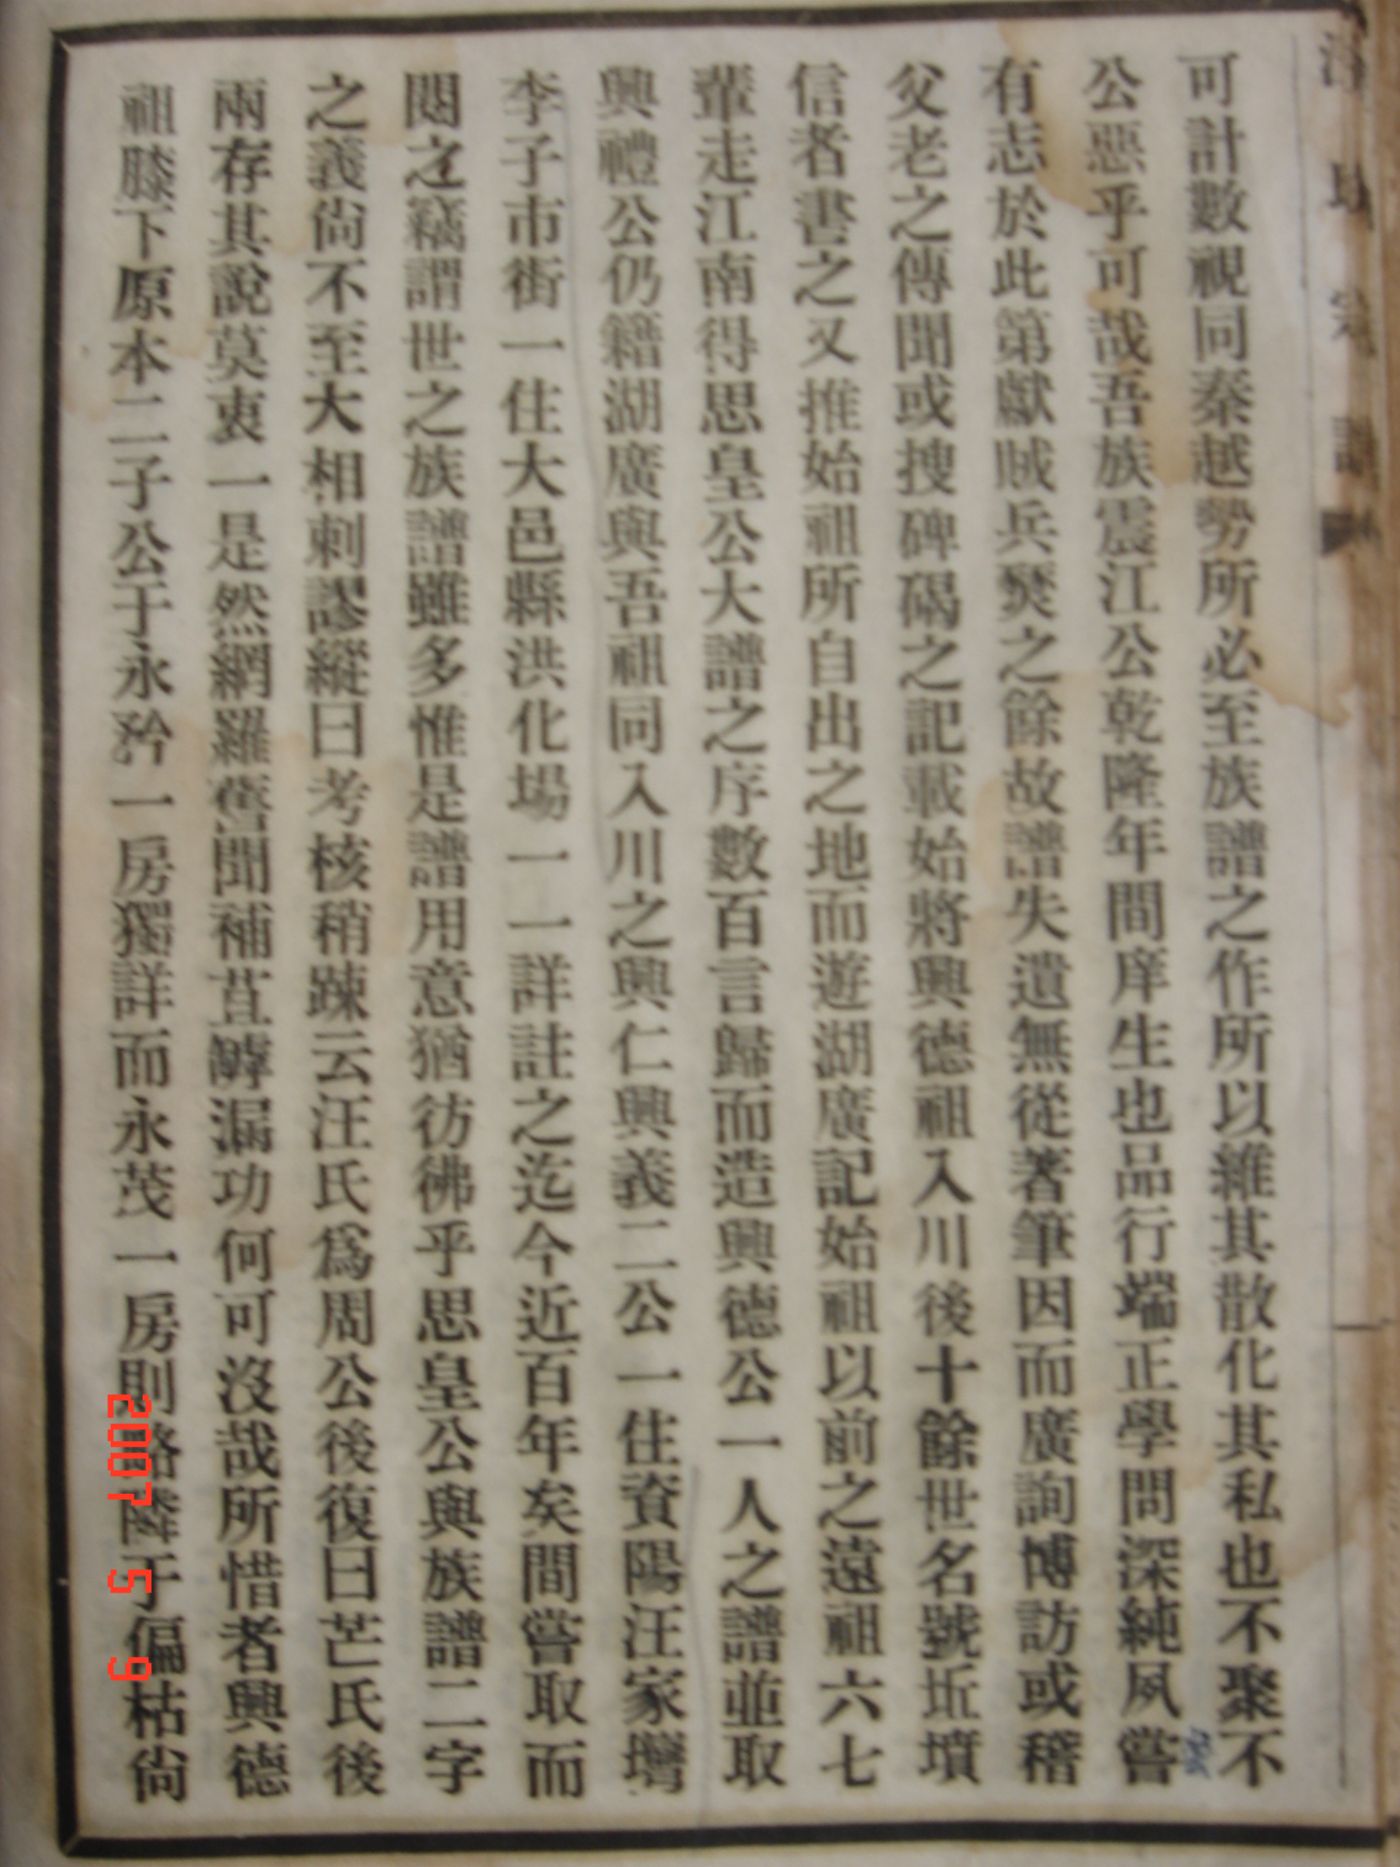 可計數視同秦越勢所必至族譜之作所以維其散化其私也不聚不
公惡乎可哉吾族震江公乾隆年間庠生也品行端正學問深純夙嘗
有志於此第獻賊兵燹之餘故譜失遺無從著筆因而廣詢博訪或稽
父老之傳聞或搜碑碣之記載始將興德祖入川後十餘世名號坵墳
信者書之又推始祖所自出之地而遊湖廣記始祖以前之遠祖六七
輩走江南得思皇公大譜之序數百言歸而造興德公一人之譜並取
興禮公仍籍湖廣與吾祖同入川之興仁興義二公一住資陽汪家壪
李子市街一住大邑縣洪化場一一詳註之迄今近百年矣間嘗取而
閱之竊謂世之族譜雖多惟是譜用意猶彷彿乎思皇公與族譜二字
之義尙不至大相剌謬縱曰考核稍踈云汪氏爲周公後復曰芒氏後
兩存其說莫衷一是然網羅舊聞補苴罅漏功何可沒哉所惜者興德
祖膝下原本二子公于永矜一房獨詳而永茂一房則略隣于偏枯尙
2007 5 9